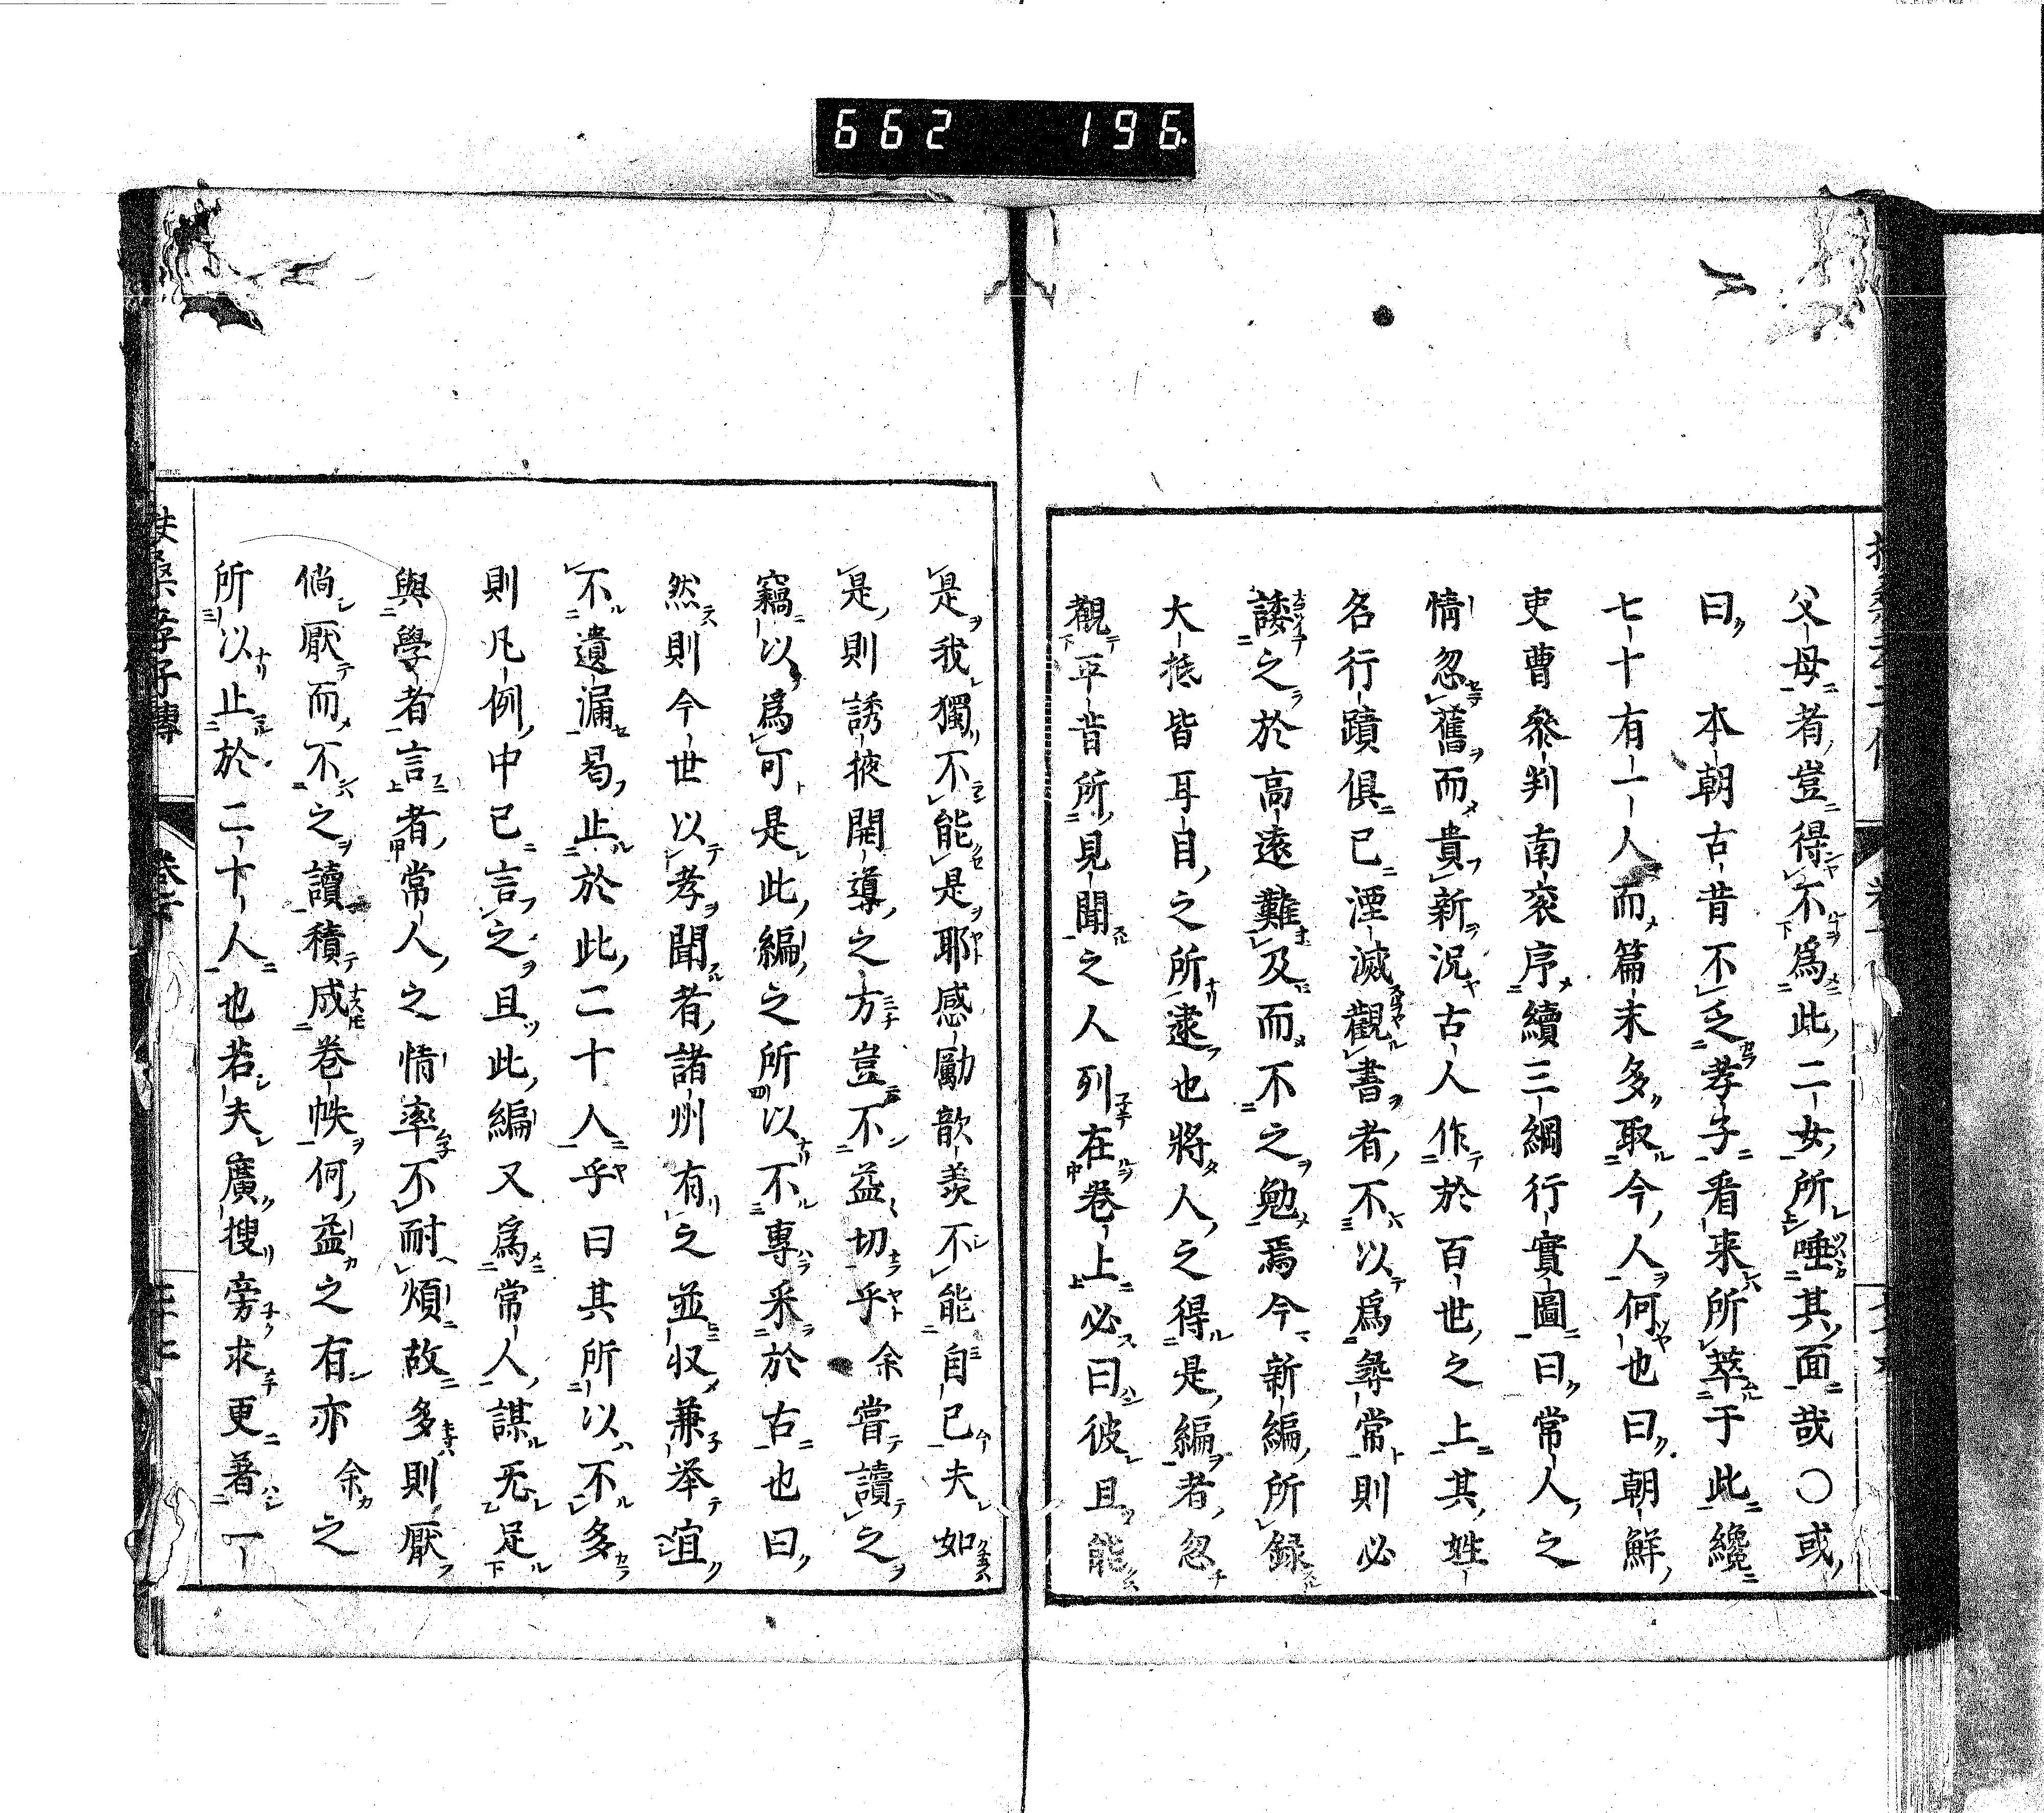 662 196
父母者豈得不爲此二女所唾其面哉○或
曰 本朝古昔不乏孝子看来所萃于此纔
七十有一人而篇末多取今人何也曰朝鮮
吏曹叅判南袞序續三綱行實圖曰常人之
情忽舊而貴新況古人作於百世之上其姓
名行蹟俱已湮滅觀書者不以爲尋常則必
諉之於高遠難及而不之勉焉今新編所録
大抵皆耳目之所逮也將人之得是編者忽
觀平昔所見聞之人列在卷上必曰彼且能
是我獨不能是耶感勵歆羨不能自已夫如
是則誘掖開導之方豈不益切乎余嘗讀之
竊以爲可是此編之所以不專釆於古也曰
然則今世以孝聞者諸州有之並収兼举宜
不遺漏曷止於此二十人乎曰其所以不多
則凡例中已言之且此編又爲常人謀旡足
與學者言者常人之情率不耐煩故多則厭
倘厭而不之讀積成卷帙何益之有亦余之
所以止於二十人也若夫廣搜旁求更著一
扶桑孝子傳